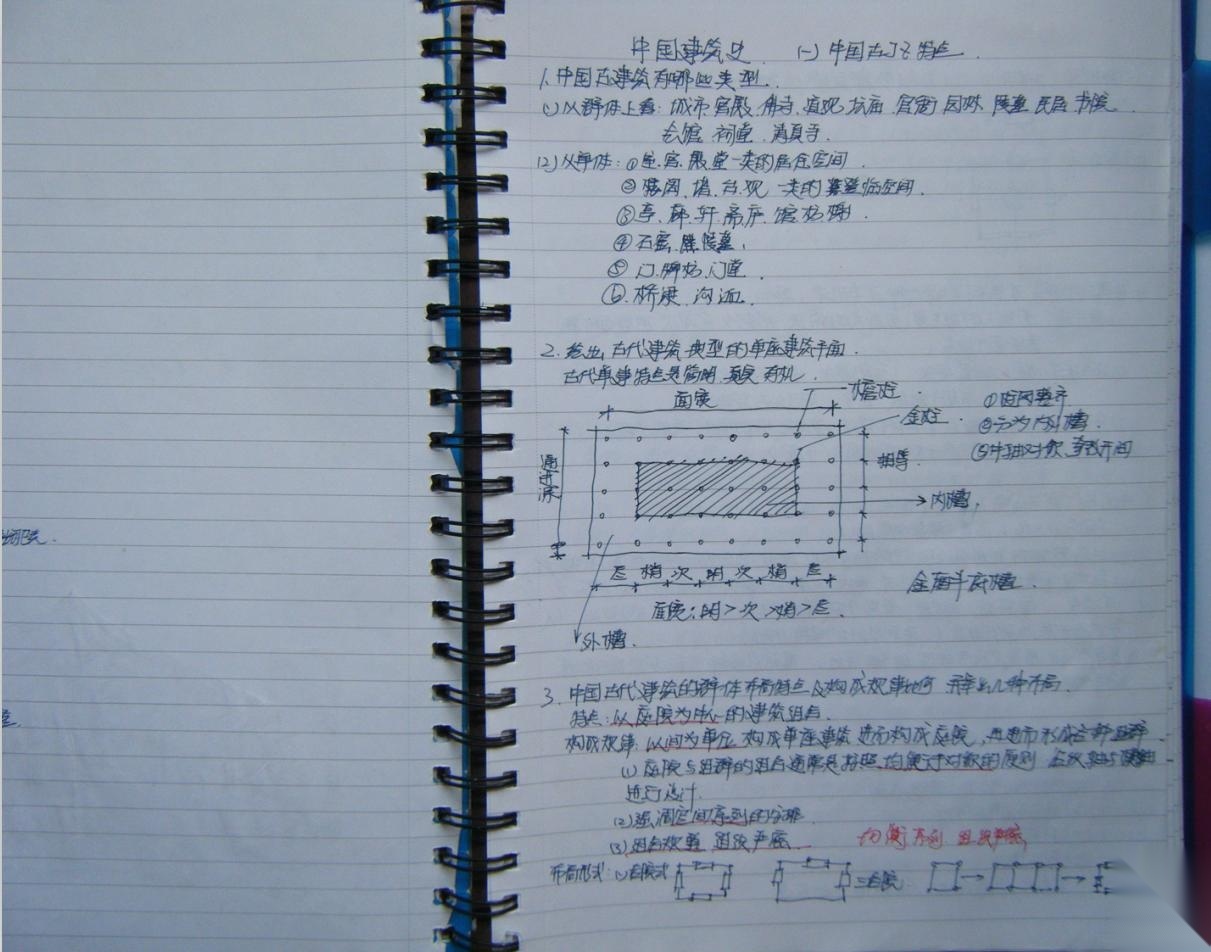 中国建筑史 (一) 中国古 特点
1. 中国古建筑有哪些类型.
(1)从群体上看: 城市 宫殿 佛寺 道观 坛庙 官衙 园林 陵墓 民居 书院
会馆 祠堂 清真寺.
(2)从单体: ① 宫.殿.堂一类的居住空间.
②楼阁.塔.台.观 一类的 空间.
③亭.廊.轩.斋.庐.馆.坊.榭.
④石窟. 陵墓.
⑤门.牌坊.门堂.
⑥.桥梁.沟洫.
2. 绘出古代建筑典型的单座建筑平面.
古代单 特点是简明. 有机.
面宽
檐柱.
金柱.
①柱网整齐
②分为内外槽.
③中轴对称, 开间
通进深
相等.
内槽.
尽 梢 次 明 次 梢 尽
金箱斗底槽.
面宽:明>次>梢>尽.
外槽.
3. 中国古代建筑的群体布局特点及构成规律如何 几种布局.
特点:以庭院为中心的建筑组合.
构成规律:以间为单位 构成单座建筑 进而构成庭院,再进而形成 组群
(1) 庭院与组群的组合通常是按照均衡对称的原则
进行设计.
(2)强调空间序列的安排.
(3)组合 组织严密. 均衡 序列 组织严密
布局形式:(1)四合院式 三合院.